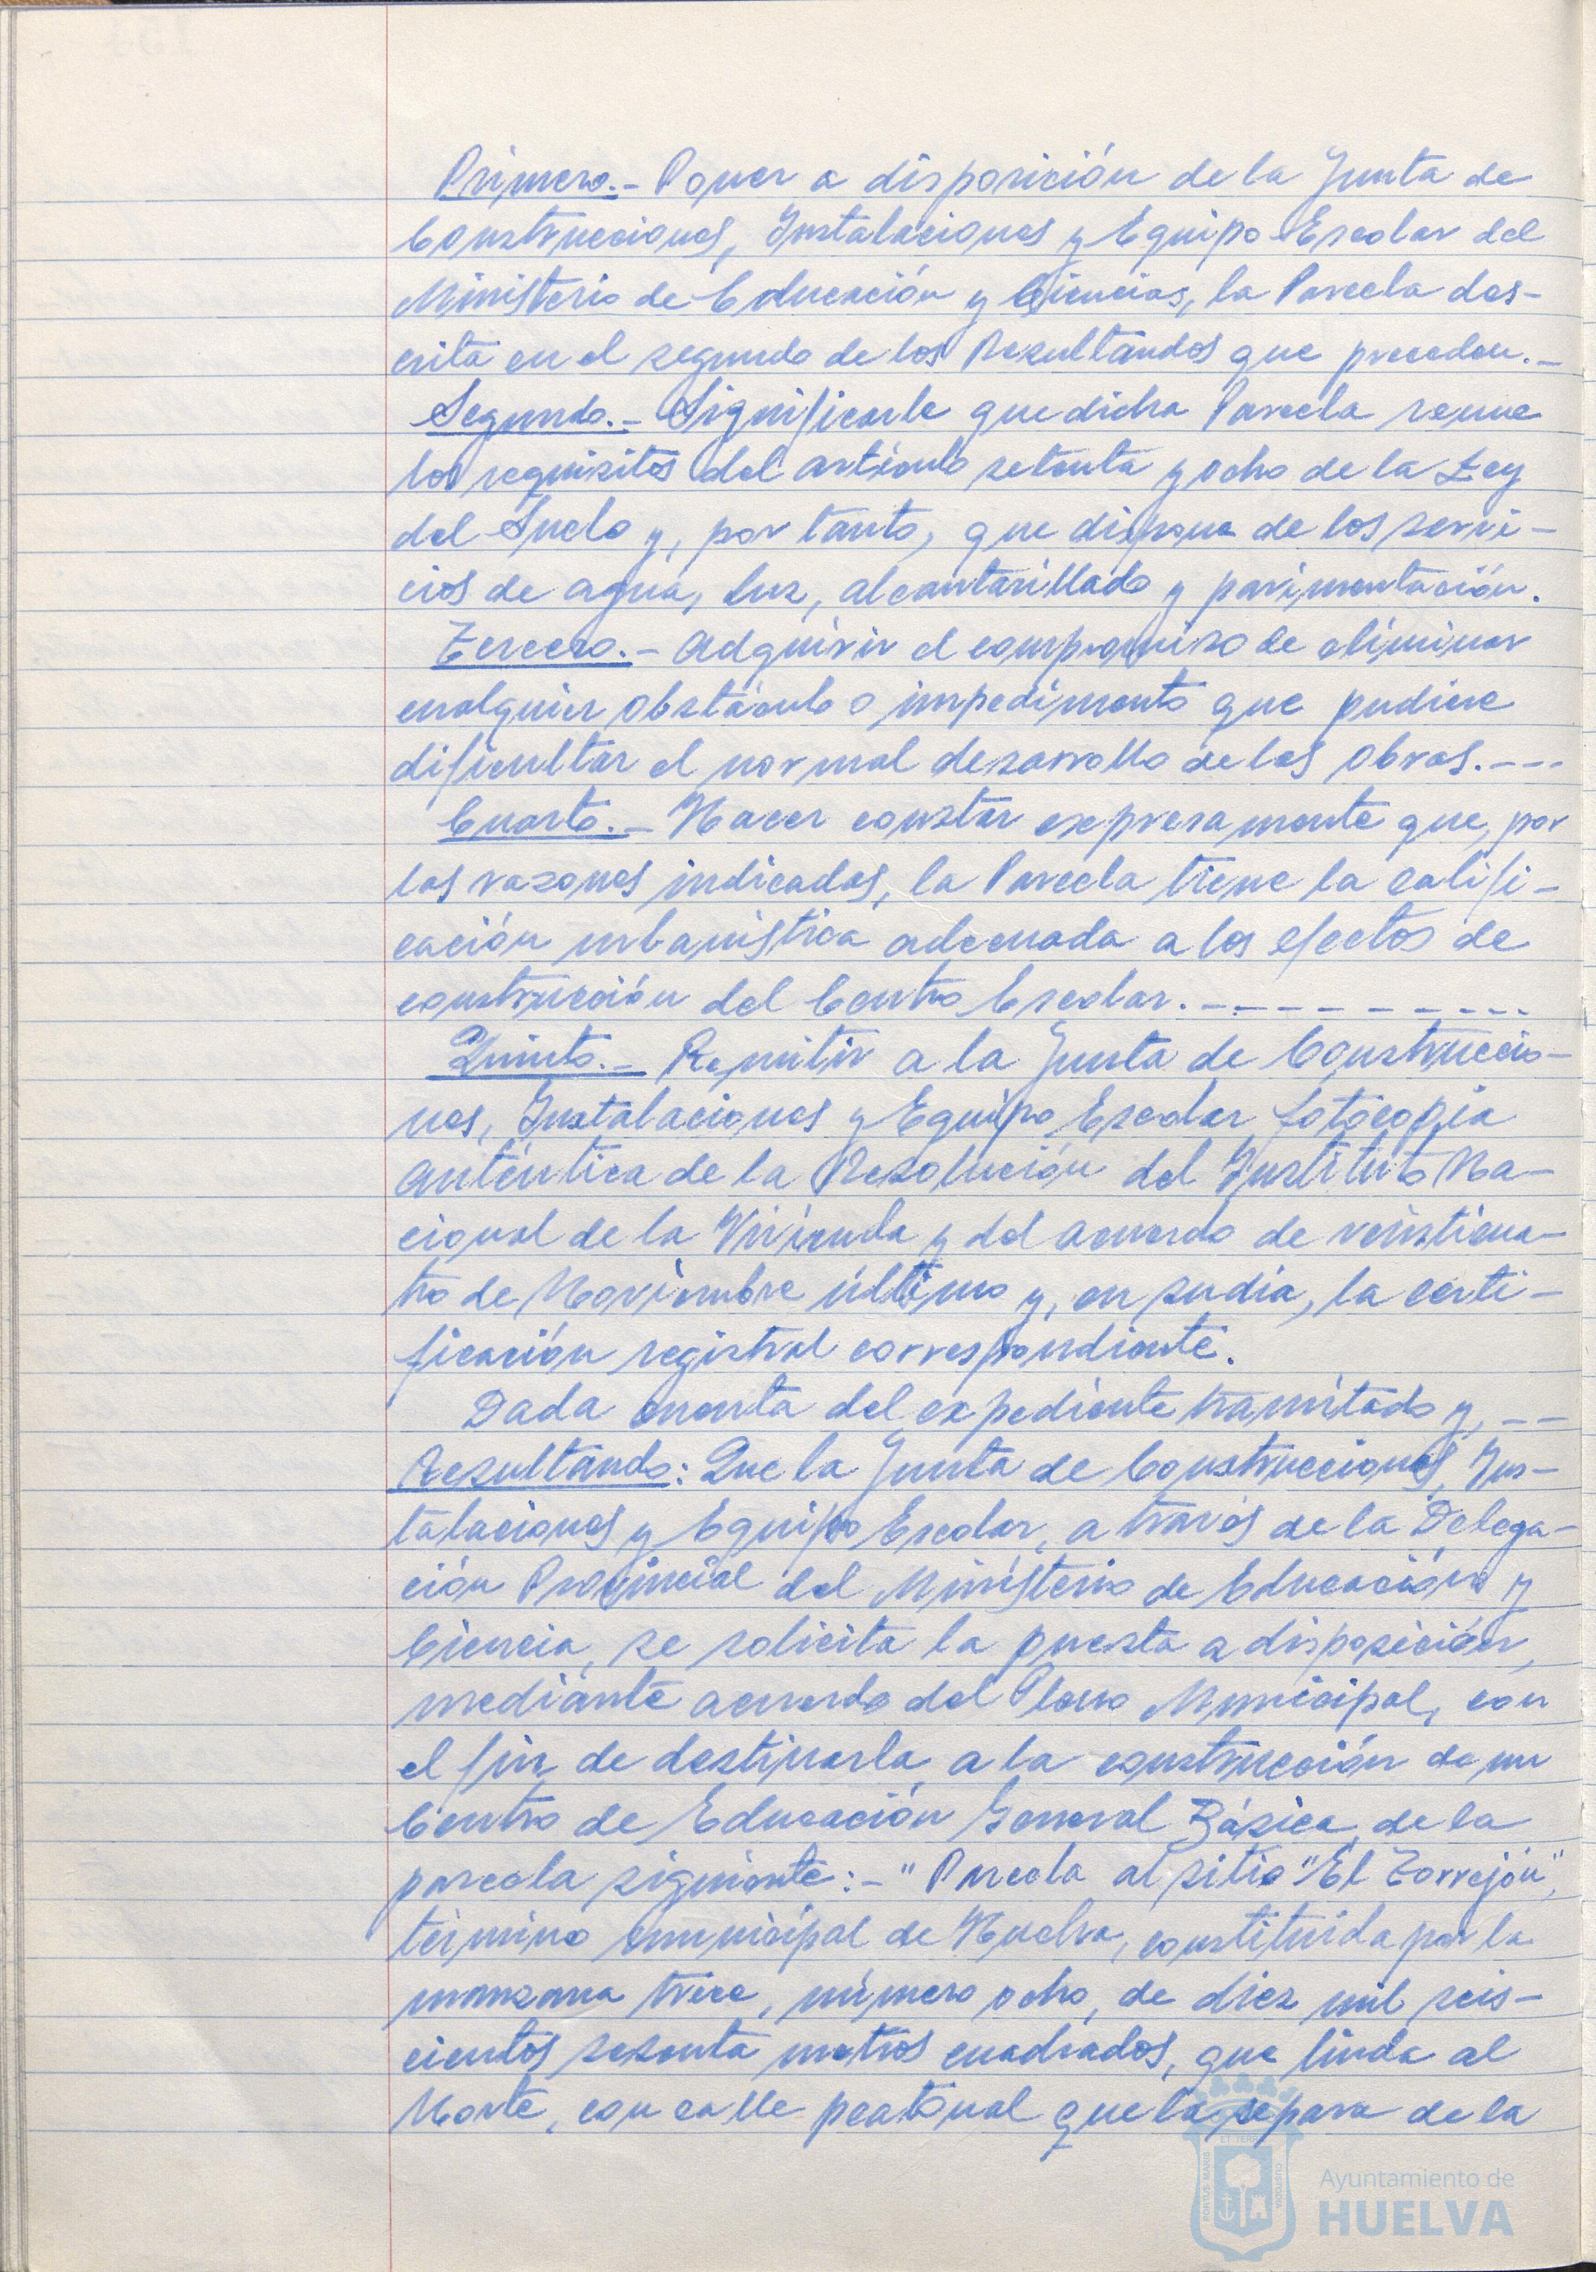 Primero.- Poner a disposición de la Junta de
Construcciones, Instalaciones y Equipo Escolar del
Ministerio de Educación y Ciencias, la Parcela des-
crita en el segundo de los Resultandos que preceden.-
Segundo.- Significarle que dicha Parcela reune
los requisitos del artículo setenta y ocho de la Ley
del Suelo y, por tanto, que dispone de los servi-
cios de agua, luz, alcantarillado y pavimentación.
Tercero.- Adquirir el compromiso de eliminar
cualquier obstáculo o impedimento que pudiere
dificultar el normal desarrollo de las obras.---
Cuarto.- Hacer constar expresamente que, por
las razones indicadas, la Parcela tiene la califi-
cación urbanística adecuada a los efectos de
construcción del Centro Escolar.----------
Quinto.- Remitir a la Junta de Construccio-
nes, Instalaciones y Equipo Escolar fotocopia
auténtica de la Resolución del Instituto Na-
cional de la Vivienda y del acuerdo de veinticua-
tro de Noviembre último y, en su día, la certi-
ficación registral correspondiente.
Dada cuenta del expediente tramitado y, --
Resultando: Que la Junta de Construcciones, Ins-
talaciones y Equipo Escolar, a través de la Delega-
ción Provincial del Ministerio de Educación y
Ciencia, se solicita la puesta a disposición,
mediante acuerdo del Pleno Municipal, con
el fin de destinarla a la construcción de un
Centro de Educación General Básica, de la
parcela siguiente:- "Parcela al sitio "El Torrejón",
término municipal de Huelva, constituida por la
manzana trece, número ocho, de diez mil seis-
cientos sesenta metros cuadrados, que linda al
Norte, con calle peatonal que la separa de la
PORTUS MARIS ET TERRAE CUSTODIA
Ayuntamiento de
HUELVA